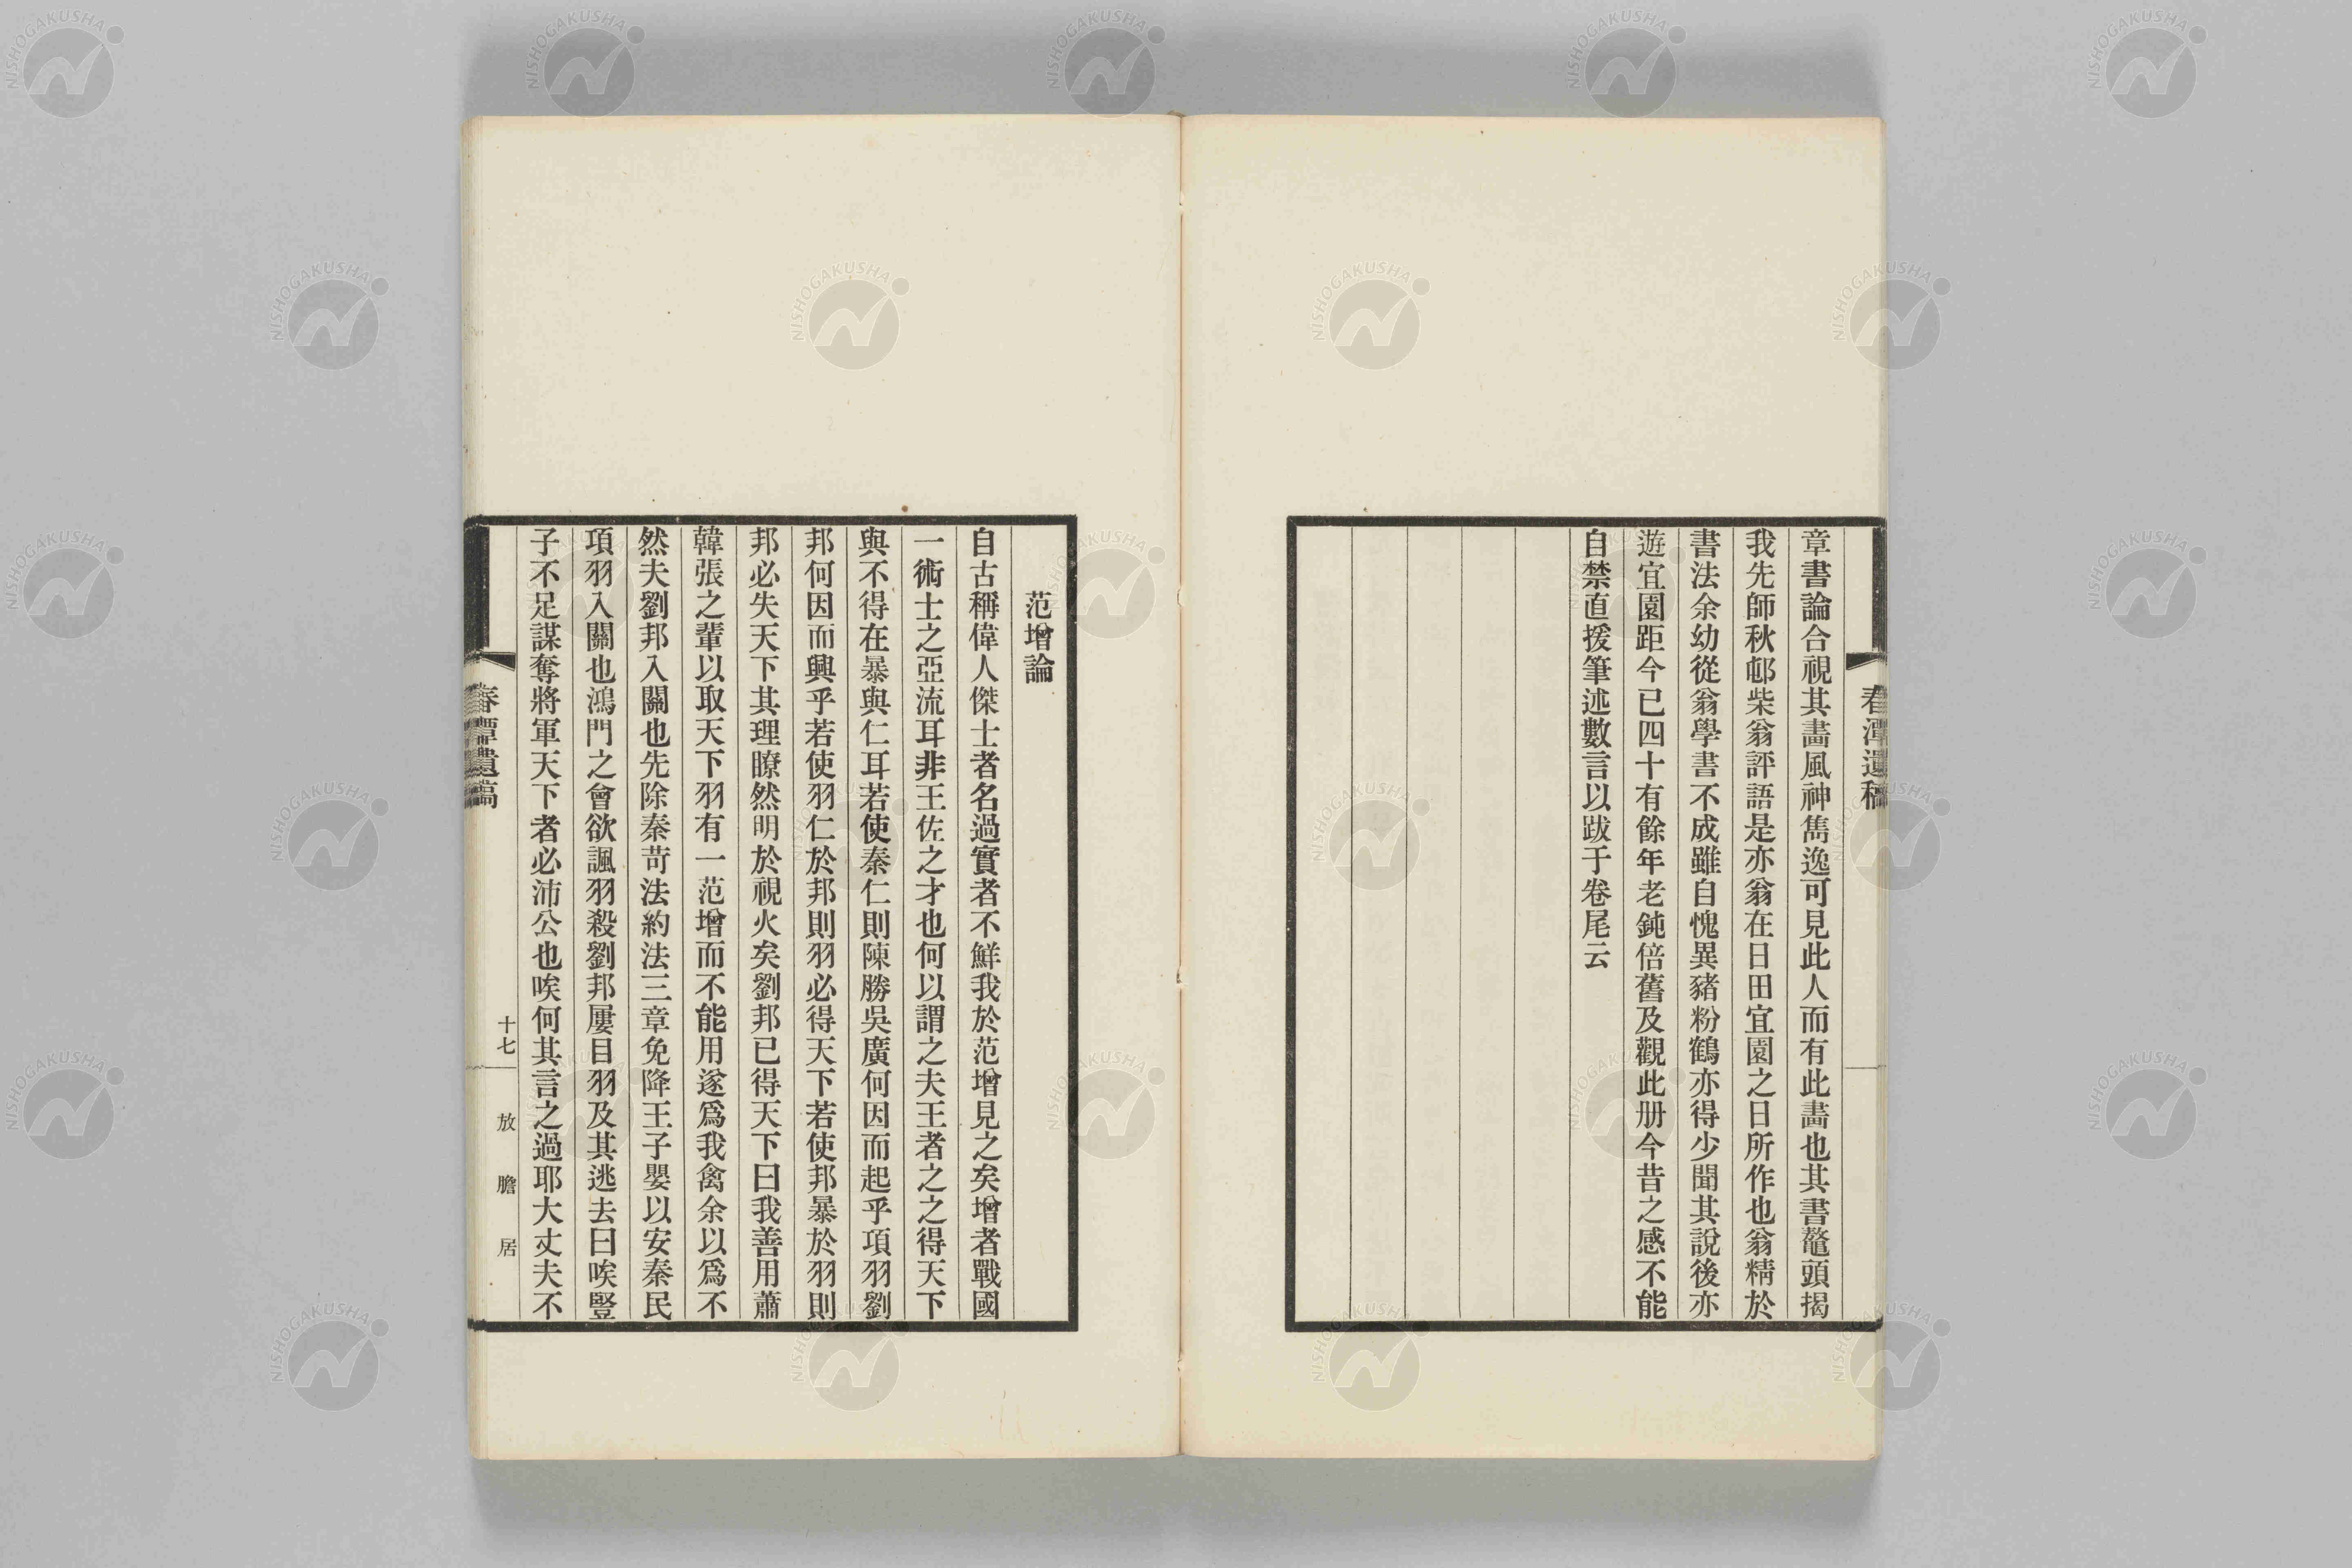 春潭遺稿
章書論合視其畵風神雋逸可見此人而有此畵也其書鼇頭揭
我先師秋邨柴翁評語是亦翁在日田宜園之日所作也翁精於
書法余幼從翁學書不成雖自愧異豬粉鶴亦得少聞其說後亦
遊宜園距今已四十有餘年老鈍倍舊及觀此册今昔之感不能
自禁直援筆述數言以跋于卷尾云
范增論
自古稱偉人傑士者名過實者不鮮我於范增見之矣增者戰國
一術士之亞流耳非王佐之才也何以謂之夫王者之之得天下
與不得在暴與仁耳若使秦仁則陳勝吳廣何因而起乎項羽劉
邦何因而興乎若使羽仁於邦則羽必得天下若使邦暴於羽則
邦必失天下其理瞭然明於視火矣劉邦已得天下曰我善用蕭
韓張之輩以取天下羽有一范增而不能用遂爲我禽余以爲不
然夫劉邦入關也先除秦苛法約法三章免降王子嬰以安秦民
項羽入關也鴻門之會欲諷羽殺劉邦屢目羽及其逃去曰唉豎
子不足謀奪將軍天下者必沛公也唉何其言之過耶大丈夫不
春潭遺稿
十七
放膽居
NISHOGAKUSHA